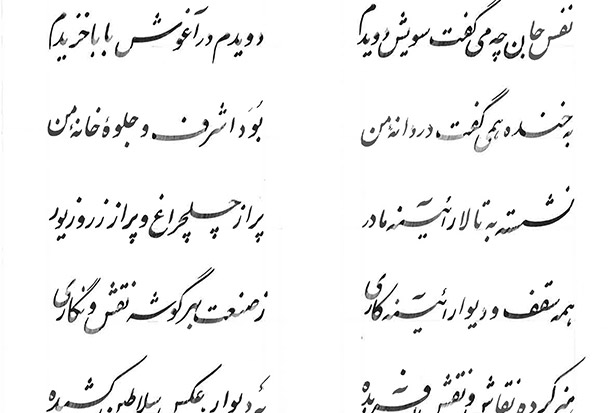 نفس جان چه می گفت سویش دویدم دویدم در آغوش بابا خزیدم
به خنده همی گفت دردانهٔ من بَوَد اشرف و جلوهٔ خانهٔ من
نشسته به تالار آئینه مادر پر از چلچراغ و پر از زر و زیور
همه سقف و دیوار آئینه کاری ز صنعت بهر گوشه نقش و نگاری
هنر کرده نقاش و نقش آفریده به دیوار عکس سلاطین کشیده